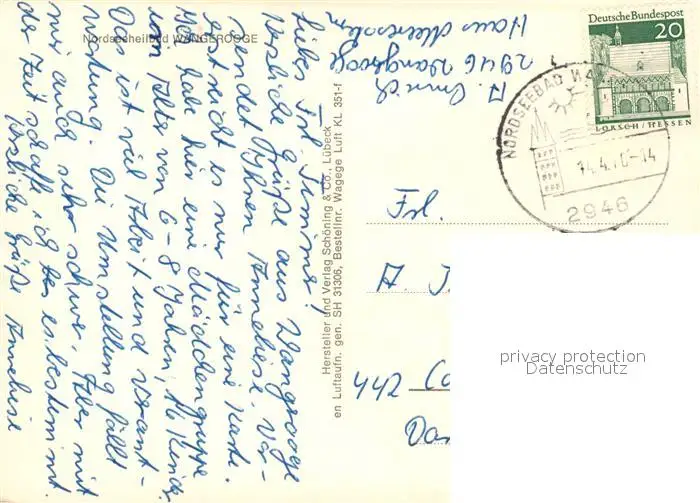 Nordseeheilbad WANGEROOGE
Liebes Frl. Timme!
Herzliche Grüße aus Wangerooge
sendet Ihnen Anneliese. Vor-
erst reicht es nur für eine Karte.
Ich habe hier eine Mädchengruppe
vom Alter von 6-8 Jahren, 16 Kinder.
Das ist viel Arbeit und Verant-
wortung. Die Umstellung fällt
mir auch sehr schwer. Aber mit
der Zeit schaffe ich es bestimmt.
Herzliche Grüße Anneliese
A.
Haus Meeresstern
2946 Wangerooge
Hersteller und Verlag Schöning & Co., Lübeck
en Luftaufn. gen. SH 31306, Bestellnr. Wagege Luft KL 351-f
Deutsche Bundespost
20
LORSCH/HESSEN
NORDSEEBAD WA
14.4.70-14
2946
Frl.
A.
442 Co
privacy protection
Datenschutz